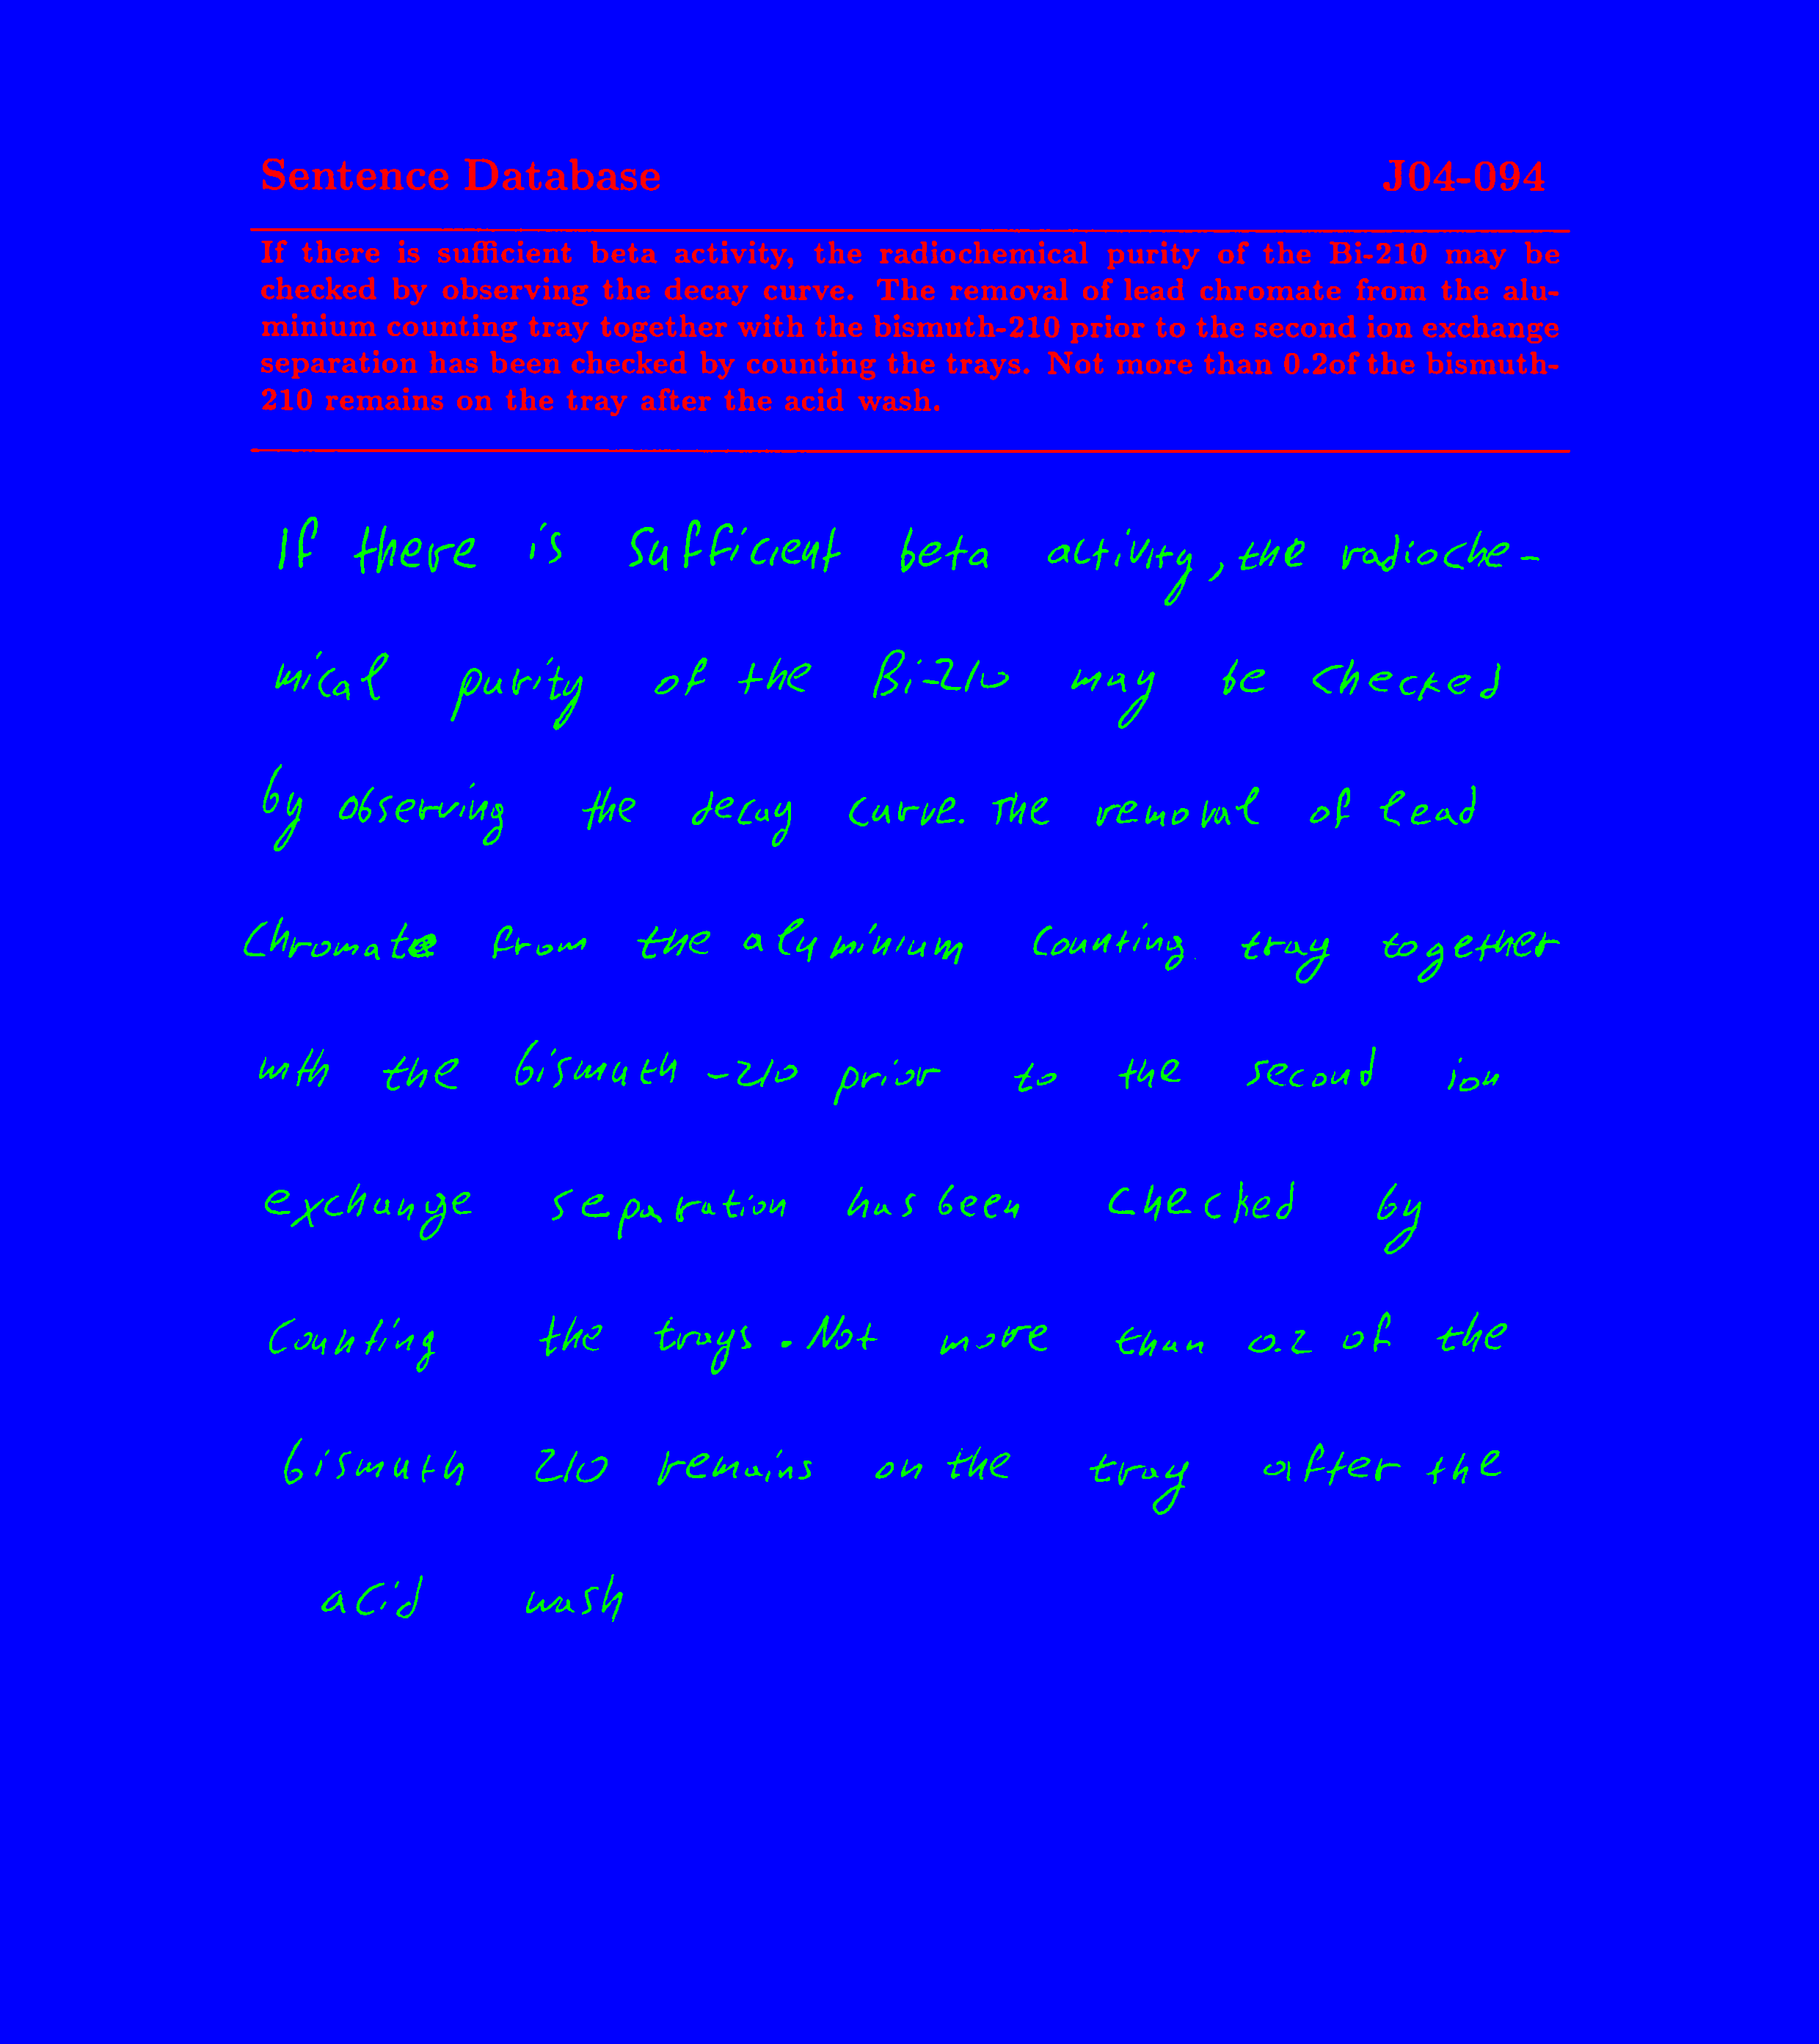 Sentence Database J04-094
If there is sufficient beta activity, the radiochemical purity of the Bi-210 may be
checked by observing the decay curve. The removal of lead chromate from the alu-
minium counting tray together with the bismuth-210 prior to the second ion exchange
separation has been checked by counting the trays. Not more than 0.2of the bismuth-
210 remains on the tray after the acid wash.
If there is sufficient beta activity, the radioche-
mical purity of the Bi-210 may be checked
by observing the decay curve. The removal of lead
chromate from the aluminium counting tray together
with the bismuth-210 prior to the second ion
exchange separation has been checked by
counting the trays. Not more than 0.2 of the
bismuth 210 remains on the tray after the
acid wash